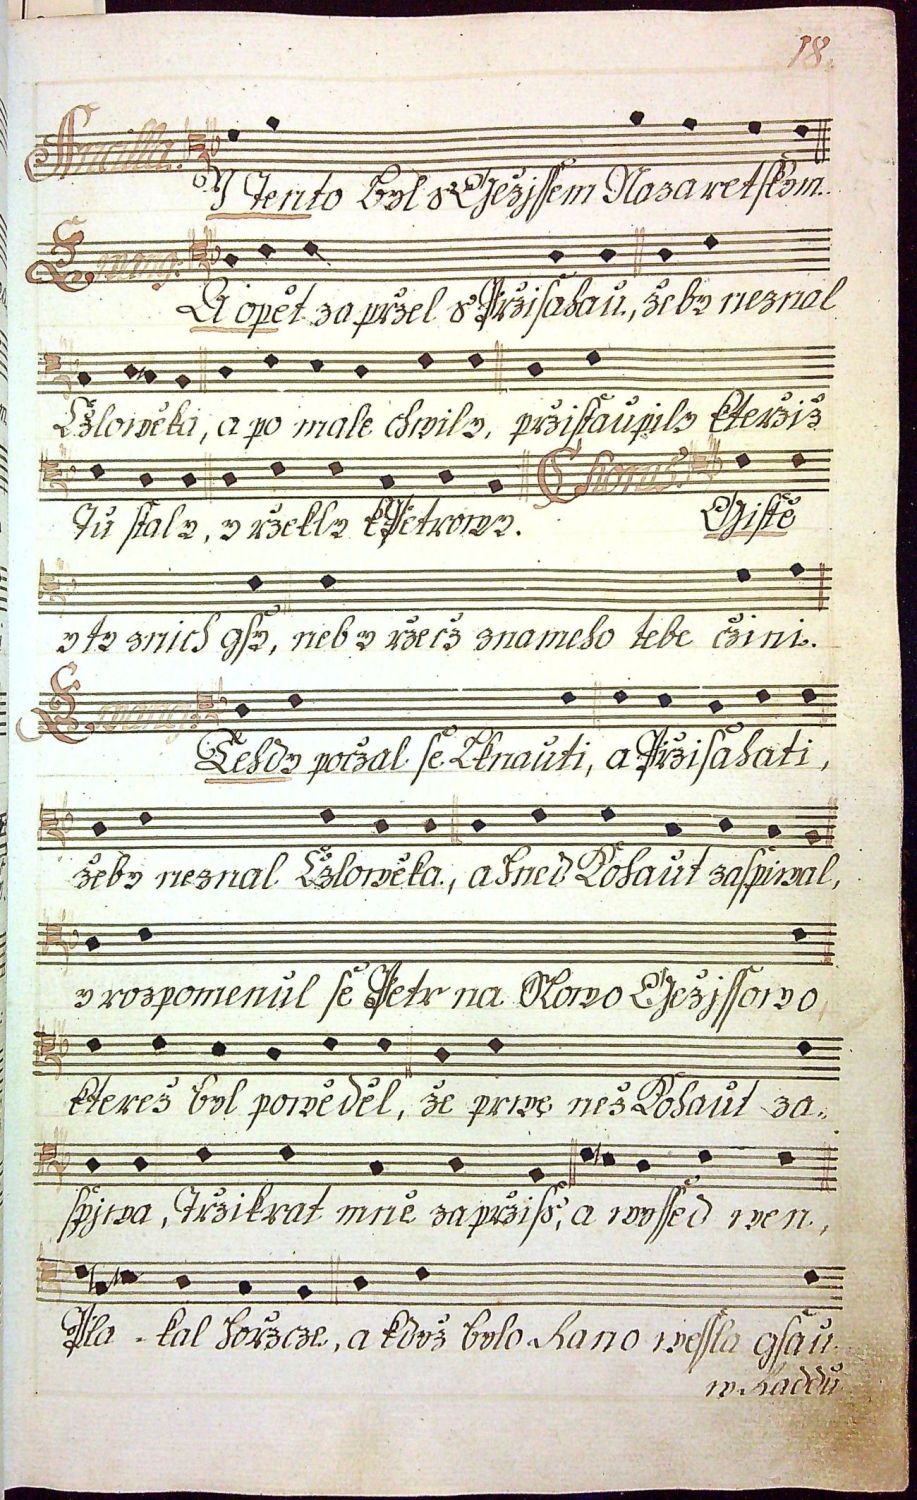 18.
Ancilla:
Y Tento byl s Gežjssem Nazaretskym.
Ewang:
A opět zapržel s Pržisahau, žeby neznal
Čzlowěka, a po male chwily, pržistaupily kteržiž
Tu staly, y ržekly kPetrowy. Chorus: Gistě
y ty znich gsy, neb y ržecž znameho tebe čzini.
Ewang:
Tehdy počzal se Zknauti, a Pržisahati,
žeby neznal Čzlowěka, a hned Kohaut zaspiwal,
y rozpomenul se Petr na Slowo Gežjssowo
kterež byl powěděl, že prwe než Kohaut za-
spjwa, Tržikrat mne zapržiss, a wyssed wen,
Pla - kal horžcze, a když bylo Rano wessla gsau
w Raddu